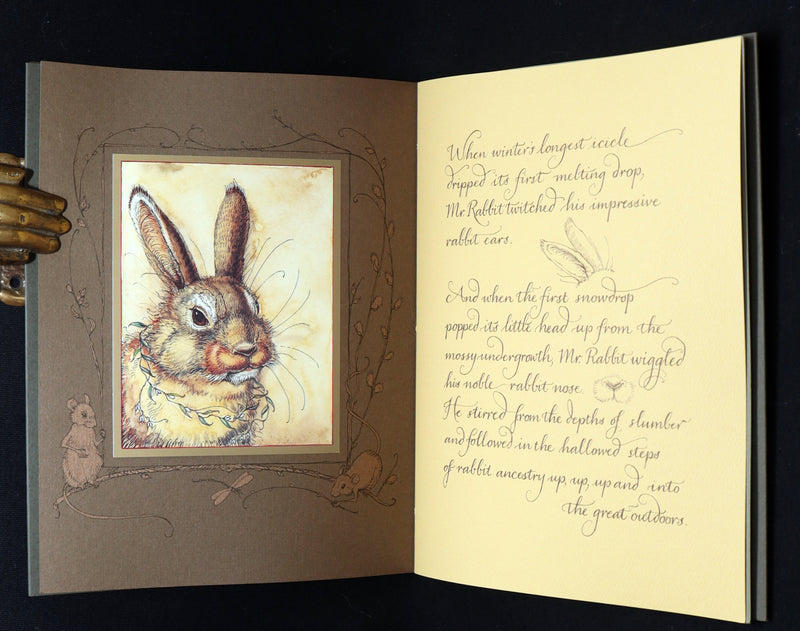 When winter's longest icicle
dripped its first melting drop,
Mr. Rabbit twitched his impressive
rabbit ears.
And when the first snowdrop
popped its little head up from the
mossy undergrowth, Mr. Rabbit wiggled
his noble rabbit nose.
He stirred from the depths of slumber
and followed in the hallowed steps
of rabbit ancestry up, up, up and into
the great outdoors.